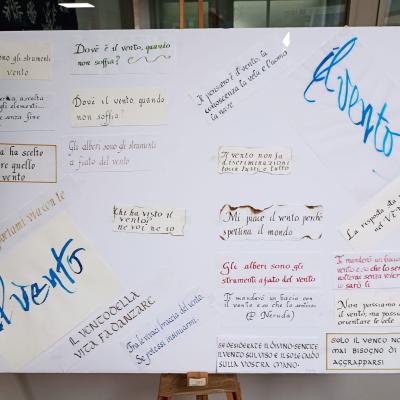 sono gli strumenti
vento
Dove è il vento, quando
non soffia?
ascolta
gli elementi...
senza fine
Dove il vento, quando
non soffia?
ha scelto
quello
vento
Gli alberi sono gli strumenti
a fiato del vento
Il pensiero è il vento, la
conoscenza la vela e l'uomo
la nave
il vento
Il vento non fa
discriminazioni
tutti e tutto
Chi ha visto il
vento?
ne voi ne io
Mi piace il vento perché
spettina il mondo
La risposta
nel
portami via con te
il vento
IL VENTO DELLA
VITA FA DANZARE
Tra le vivaci braccia del vento
Se potessi
Gli alberi sono gli
strumenti a fiato del vento
Ti manderò un bacio con il
vento e so che lo sentirai
(P. Neruda)
SE DESIDERATE IL DIVINO, SENTITE
IL VENTO SUL VISO E IL SOLE CALDO
SULLA VOSTRA MANO.
Ti manderò un bacio
vento e so che lo sen
volterai senza
sarò lì
Non possiamo
il vento, ma poss
orientare le vele
SOLO IL VENTO NO
MAI BISOGNO DI
AGGRAPPARSI